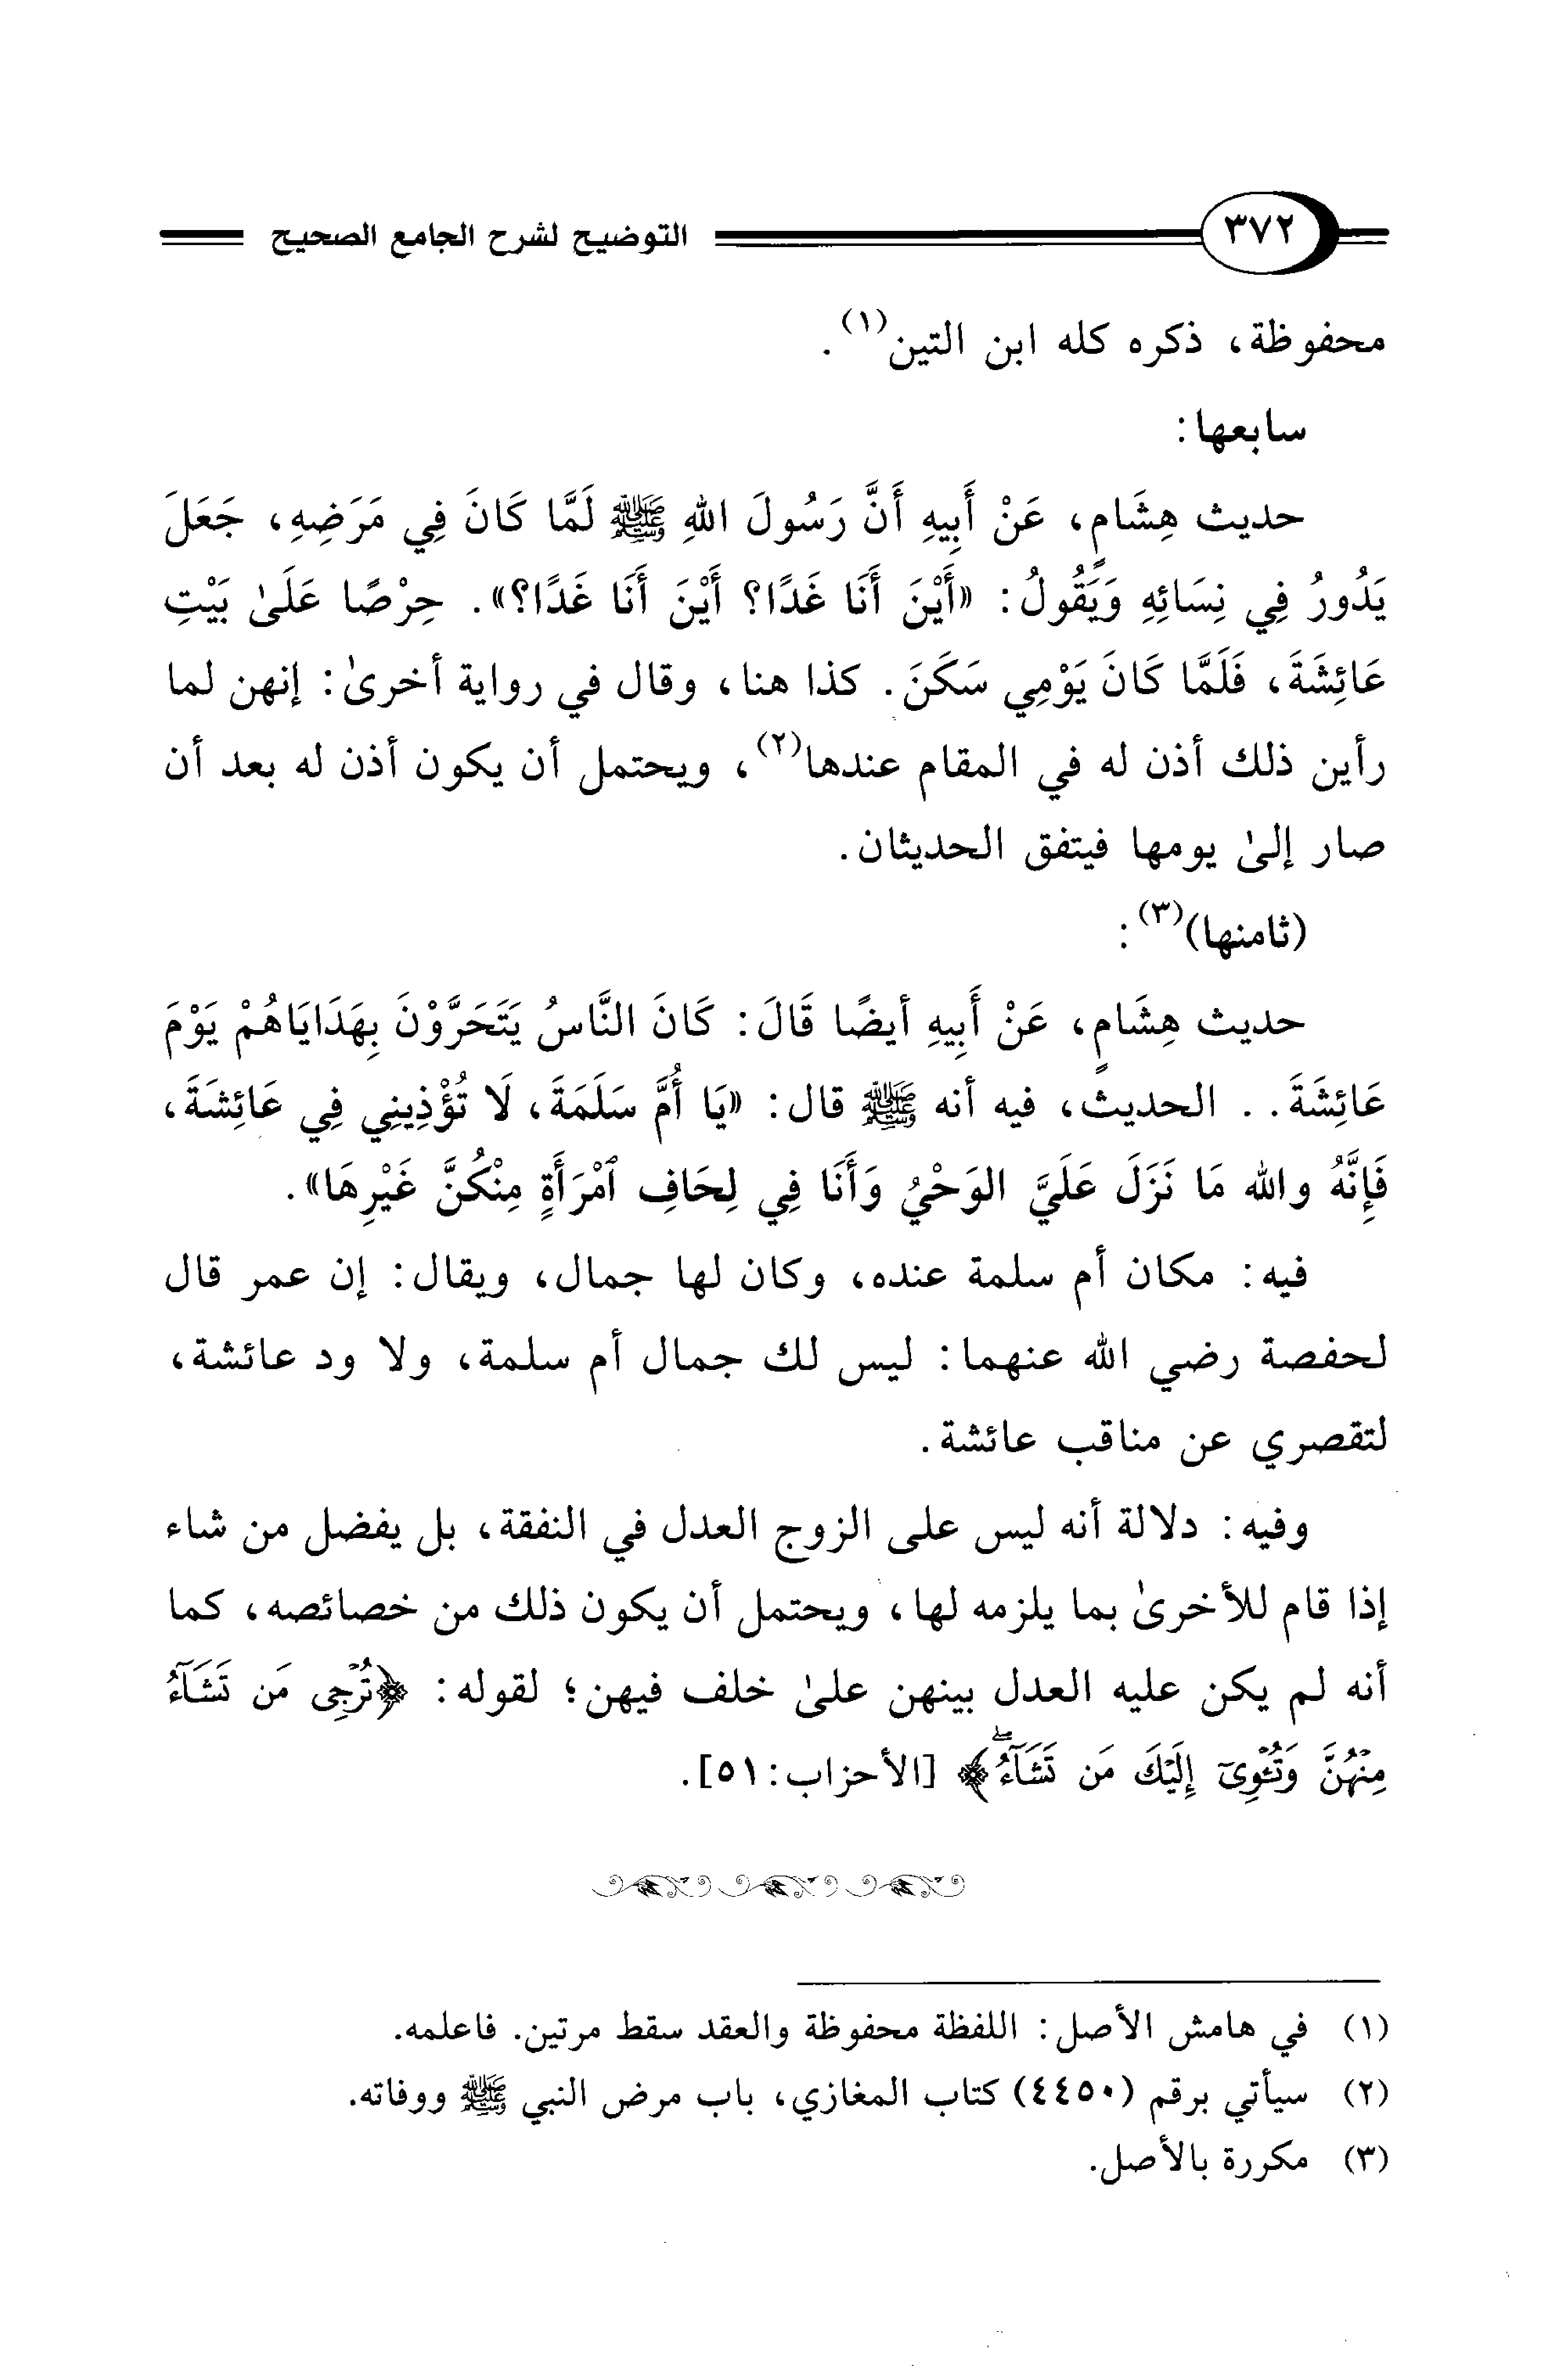 ٣٧٢ التوضيح لشرح الجامع الصحيح
محفوظة، ذكره كله ابن التين(١).
سابعها:
حديث هِشَامٍ، عَنْ أَبِيهِ أَنَّ رَسُولَ اللهِ ﷺ لَمَّا كَانَ فِي مَرَضِهِ، جَعَلَ
يَدُورُ فِي نِسَائِهِ وَيَقُولُ: «أَيْنَ أَنَا غَدًا؟ أَيْنَ أَنَا غَدًا؟». حِرْصًا عَلَىٰ بَيْتِ
عَائِشَةَ، فَلَمَّا كَانَ يَوْمِي سَكَنَ. كذا هنا، وقال في رواية أخرىٰ: إنهن لما
رأين ذلك أذن له في المقام عندها(٢)، ويحتمل أن يكون أذن له بعد أن
صار إلىٰ يومها فيتفق الحديثان.
(ثامنها)(٣):
حديث هِشَامٍ، عَنْ أَبِيهِ أيضًا قَالَ: كَانَ النَّاسُ يَتَحَرَّوْنَ بِهَدَايَاهُمْ يَوْمَ
عَائِشَةَ.. الحديث، فيه أنه ﷺ قال: «يَا أُمَّ سَلَمَةَ، لَا تُؤْذِينِي فِي عَائِشَةَ،
فَإِنَّهُ والله مَا نَزَلَ عَلَيَّ الوَحْيُ وَأَنَا فِي لِحَافِ ٱمْرَأَةٍ مِنْكُنَّ غَيْرِهَا».
فيه: مكان أم سلمة عنده، وكان لها جمال، ويقال: إن عمر قال
لحفصة رضي الله عنهما: ليس لك جمال أم سلمة، ولا ود عائشة،
لتقصري عن مناقب عائشة.
وفيه: دلالة أنه ليس على الزوج العدل في النفقة، بل يفضل من شاء
إذا قام للأخرىٰ بما يلزمه لها، ويحتمل أن يكون ذلك من خصائصه، كما
أنه لم يكن عليه العدل بينهن علىٰ خلف فيهن؛ لقوله: ﴿تُرْجِى مَن تَشَآءُ
مِنْهُنَّ وَتُـْٔوِىٓ إِلَيْكَ مَن تَشَآءُۖ﴾ [الأحزاب: ٥١].
(١) في هامش الأصل: اللفظة محفوظة والعقد سقط مرتين. فاعلمه.
(٢) سيأتي برقم (٤٤٥٠) كتاب المغازي، باب مرض النبي ﷺ ووفاته.
(٣) مكررة بالأصل.